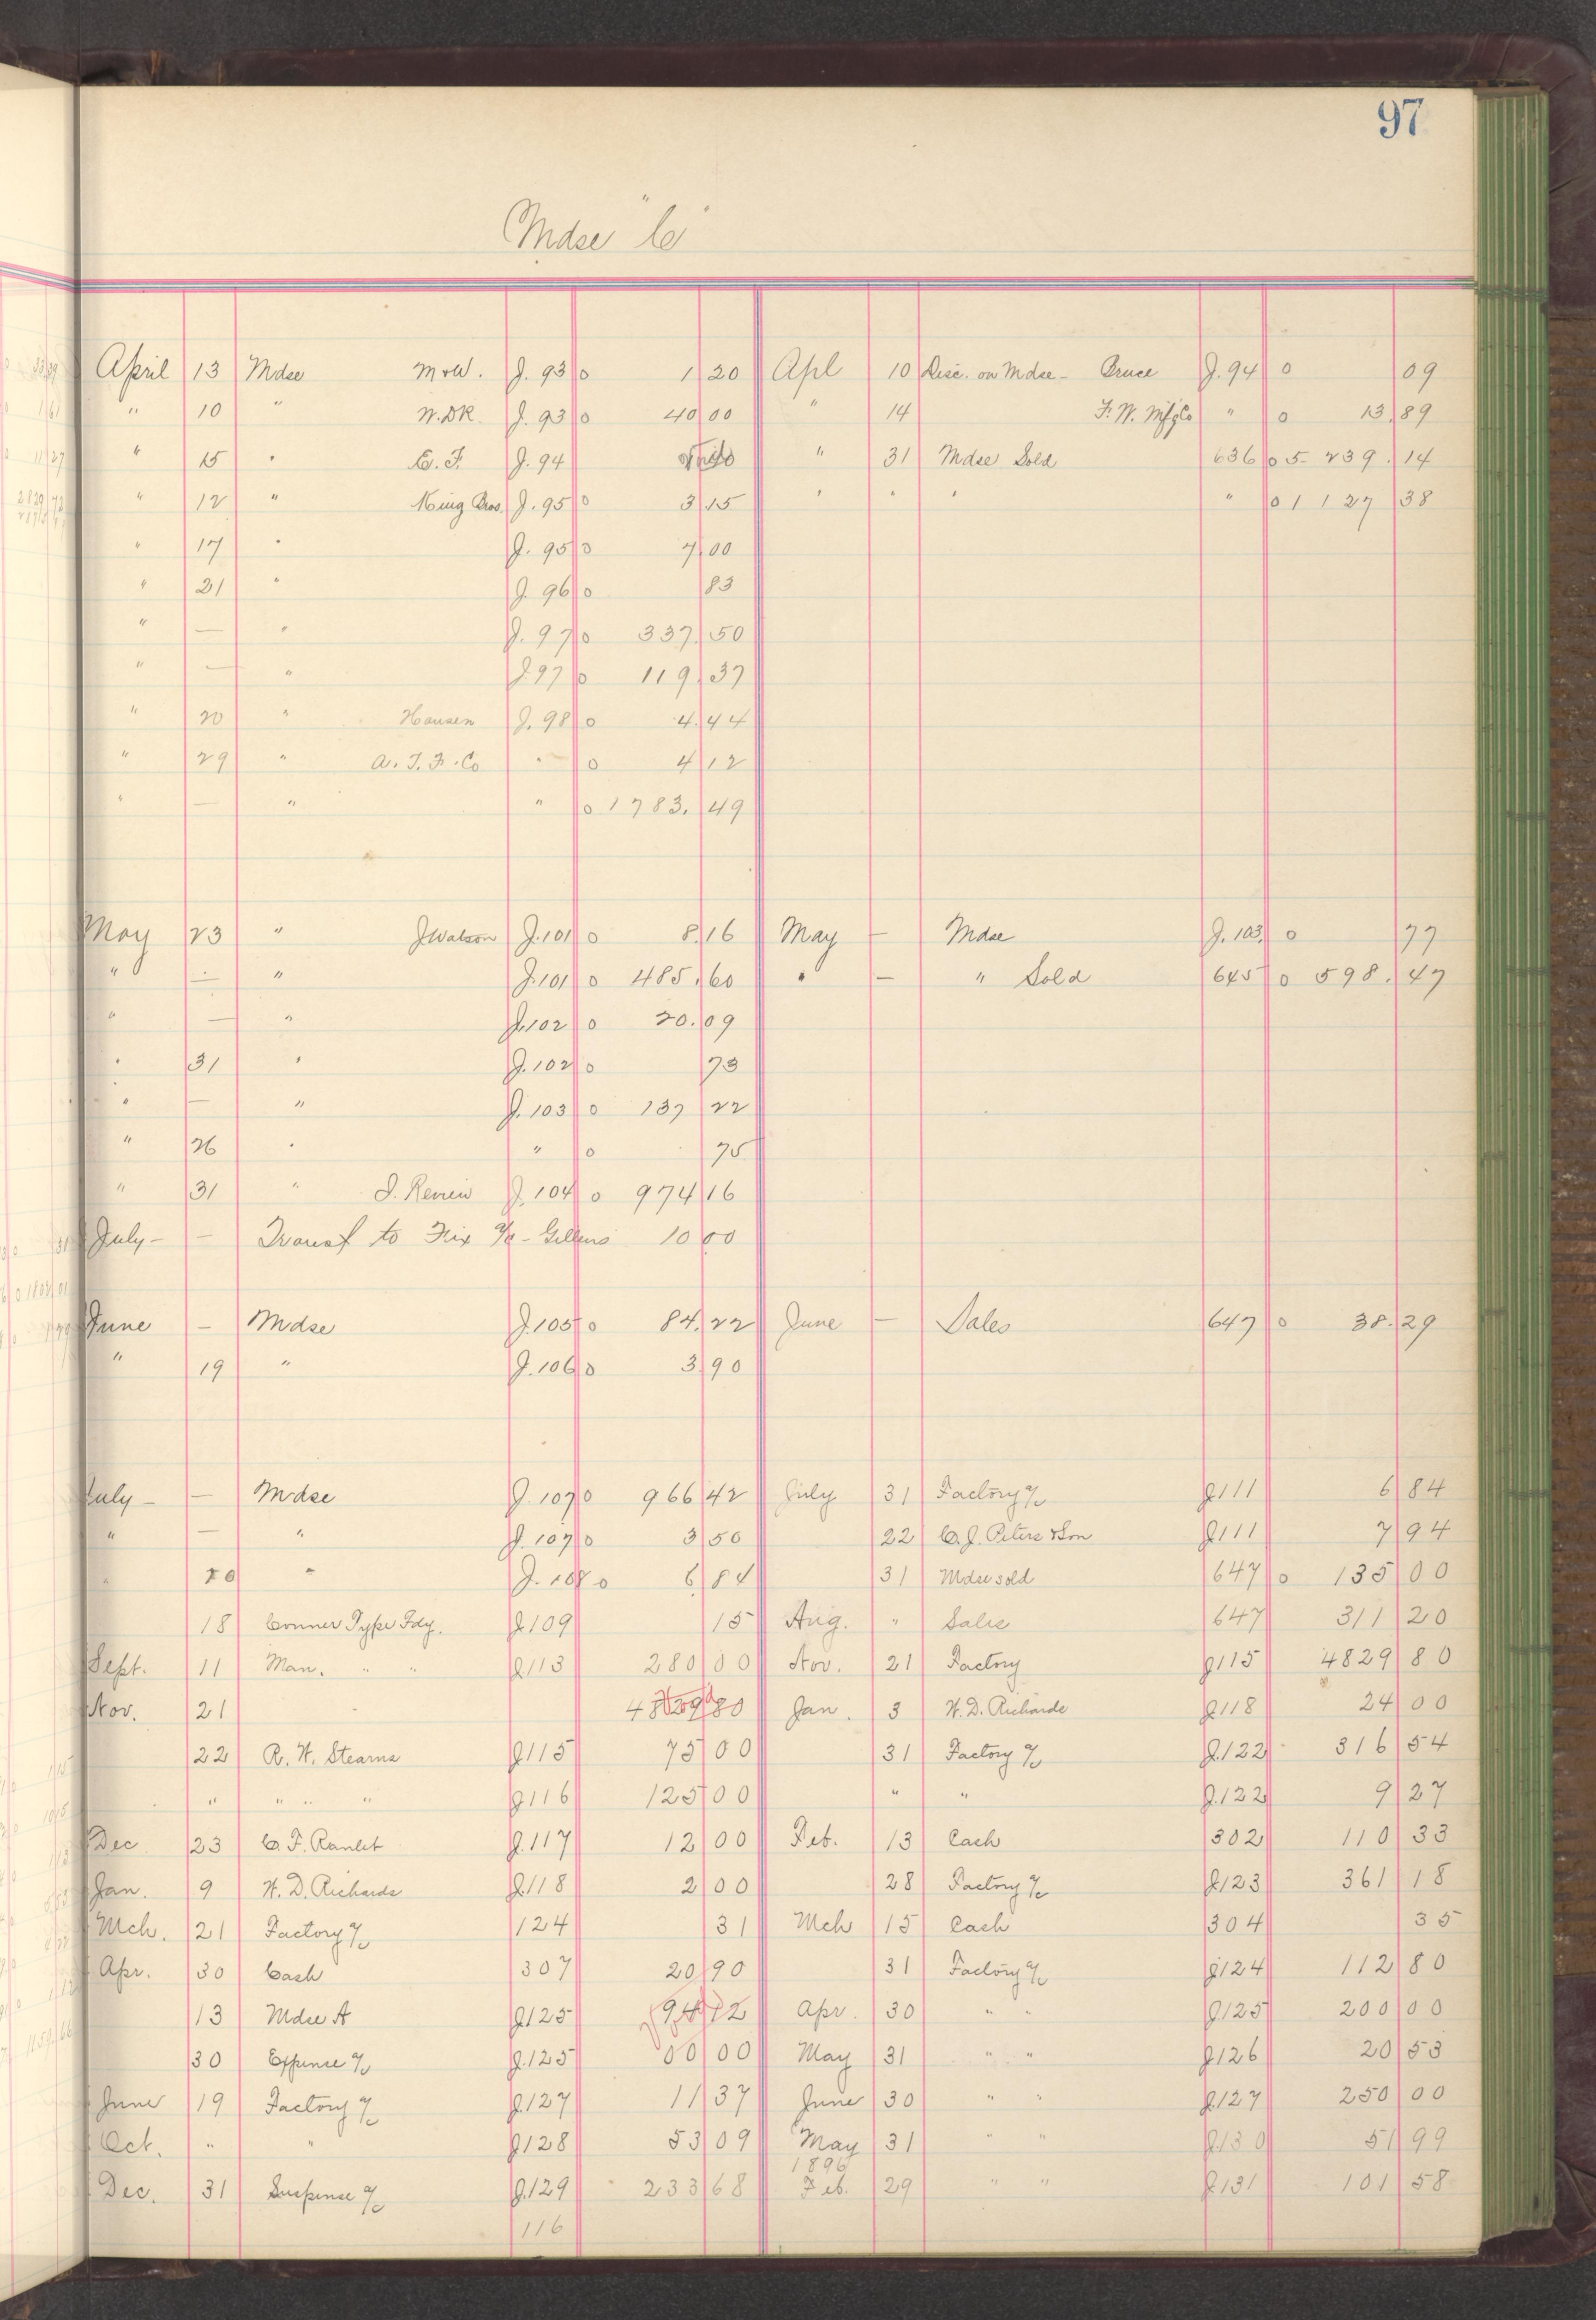 97
Mdse "C"
April 13 Mdse M & W. J. 93 0 1 20 Apl 10 Disc. on Mdse - Bruce J. 94 0 09
" 10 " W. DR. J. 93 0 40 00 " 14 F. W. Mfg Co " 0 13. 89
" 15 " C. F. J. 94 " 31 Mdse Sold 636 0 5 239. 14
" 12 " King Bros. J. 95 0 3 15 " " " " 0 1 127 38
" 17 " J. 95 0 7 00
" 21 " J. 96 0 83
" — " J. 97 0 337. 50
" — " J. 97 0 119. 37
" 20 " Hansen J. 98 0 4. 44
" 29 " A. T. F. Co " 0 4 12
" — " " 0 1783. 49
May 23 " J Watson J. 101 0 8. 16 May — Mdse J. 103. 0 77
" — " J. 101 0 485. 60 " — " Sold 645 0 598. 47
" — " J. 102 0 20. 09
" 31 " J. 102 0 73
" — " J. 103 0 137 22
" 26 " " 0 75
" 31 " J. 104 0 974 16
July — — Transf to Fix a/c - 10 00
June — Mdse J. 105 0 84. 22 June — Sales 647 0 38. 29
" 19 " J. 106 0 3. 90
July — — Mdse J. 107 0 966 42 July 31 Factory a/c J111 6 84
" — " J. 107 0 3 50 22 C. J. Peters & Son J111 7 94
" " J. 108 0 6 84 31 Mdse sold 647 0 135 00
18 Conner Type Fdy. J109 15 Aug. " Sales 647 311 20
Sept. 11 Man. " " J113 280 00 Nov. 21 Factory J115 4829 80
Nov. 21 4829 80 Jan. 3 H. D. Richards J118 24 00
22 R. H. Stearns J115 75 00 31 Factory a/c J.122 316 54
" " " " J116 125 00 " " J.122 9 27
Dec 23 C. F. Ranlet J.117 12 00 Feb. 13 Cash 302 110 33
Jan. 9 H. D. Richards J.118 2 00 28 Factory a/c J123 361 18
Mch. 21 Factory a/c 124 31 Mch 15 Cash 304 35
Apr. 30 Cash 307 20 90 31 Factory a/c J124 112 80
13 Mdse A J125 94 72 Apr. 30 " " J125 200 00
30 Expense a/c J.125 00 00 May 31 " " J126 20 53
June 19 Factory a/c J.127 11 37 June 30 " " J.127 250 00
Oct. " " J128 53 09 May 31 " " J.130 51 99
1896
Dec. 31 Suspense a/c J.129 233 68 Feb. 29 " " J131 101 58
116